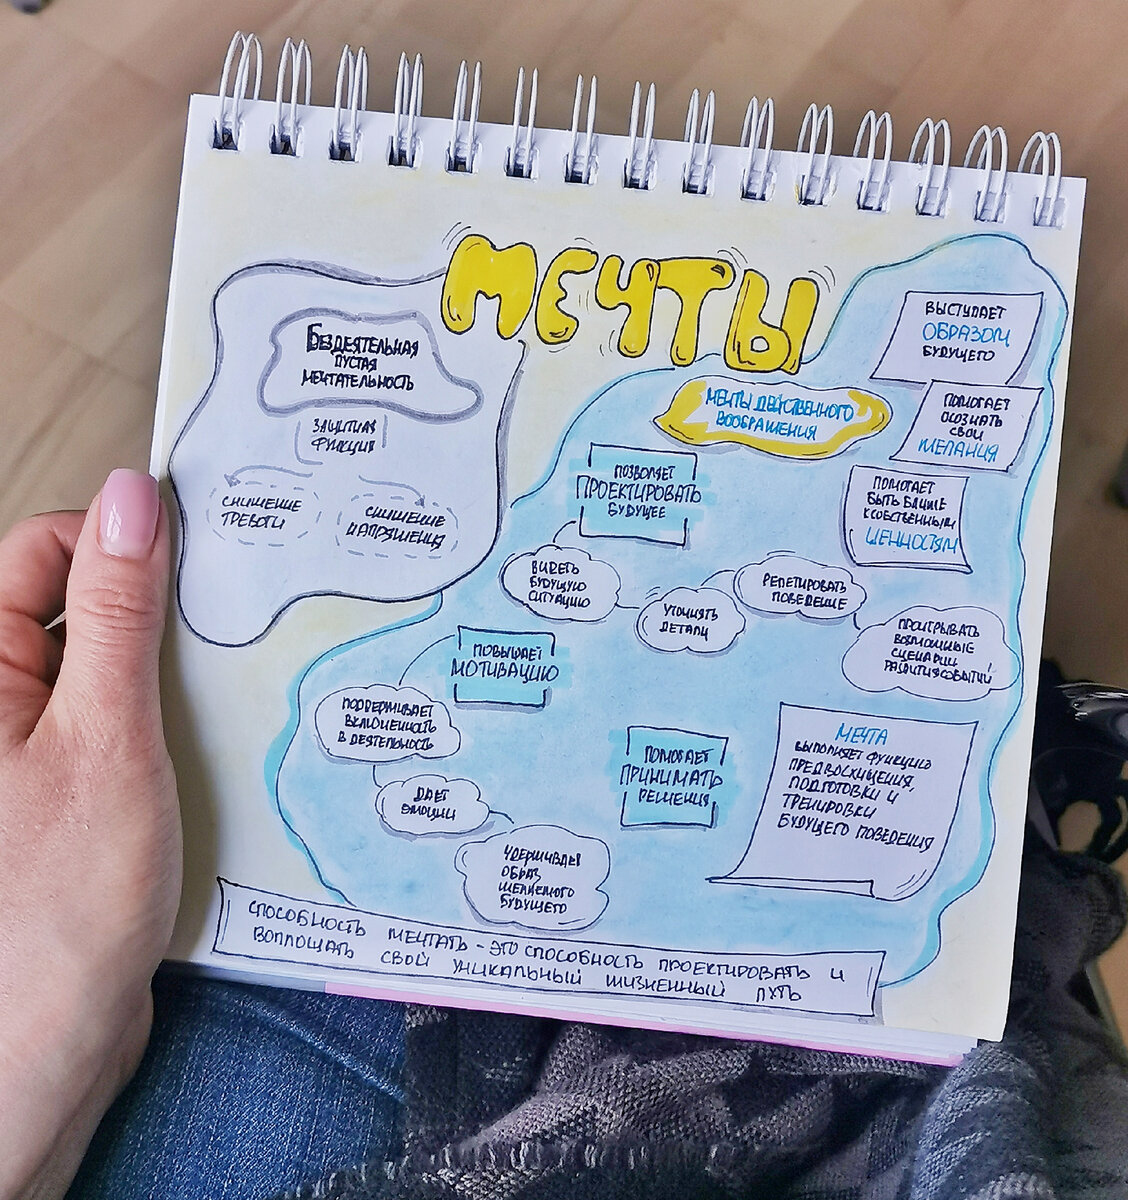 МЕЧТЫ
БЕЗДЕЯТЕЛЬНАЯ
ПУСТАЯ
МЕЧТАТЕЛЬНОСТЬ
ЗАЩИТНАЯ
ФУНКЦИЯ
СНИЖЕНИЕ
ТРЕВОГИ
СНИЖЕНИЕ
НАПРЯЖЕНИЯ
МЕЧТЫ ДЕЙСТВЕННОГО
ВООБРАЖЕНИЯ
ВЫСТУПАЕТ
ОБРАЗОМ
БУДУЩЕГО
ПОМОГАЕТ
ОСОЗНАТЬ
СВОИ
ЖЕЛАНИЯ
ПОМОГАЕТ
БЫТЬ БЛИЖЕ
К СОБСТВЕННЫМ
ЦЕННОСТЯМ
ПОЗВОЛЯЕТ
ПРОЕКТИРОВАТЬ
БУДУЩЕЕ
ВИДЕТЬ
БУДУЩУЮ
СИТУАЦИЮ
УТОЧНЯТЬ
ДЕТАЛИ
РЕПЕТИРОВАТЬ
ПОВЕДЕНИЕ
ПРОИГРЫВАТЬ
ВОЗМОЖНЫЕ
СЦЕНАРИИ
РАЗВИТИЯ СОБЫТИЙ
ПОВЫШАЕТ
МОТИВАЦИЮ
ПОДДЕРЖИВАЕТ
ВКЛЮЧЕННОСТЬ
В ДЕЯТЕЛЬНОСТЬ
ДАЕТ
ЭМОЦИИ
УДЕРЖИВАЕТ
ОБРАЗ
ЖЕЛАЕМОГО
БУДУЩЕГО
ПОМОГАЕТ
ПРИНИМАТЬ
РЕШЕНИЯ
МЕЧТА
ВЫПОЛНЯЕТ ФУНКЦИЮ
ПРЕДВОСХИЩЕНИЯ,
ПОДГОТОВКИ И
ТРЕНИРОВКИ
БУДУЩЕГО ПОВЕДЕНИЯ
СПОСОБНОСТЬ МЕЧТАТЬ - ЭТО СПОСОБНОСТЬ ПРОЕКТИРОВАТЬ И
ВОПЛОЩАТЬ СВОЙ УНИКАЛЬНЫЙ ЖИЗНЕННЫЙ ПУТЬ